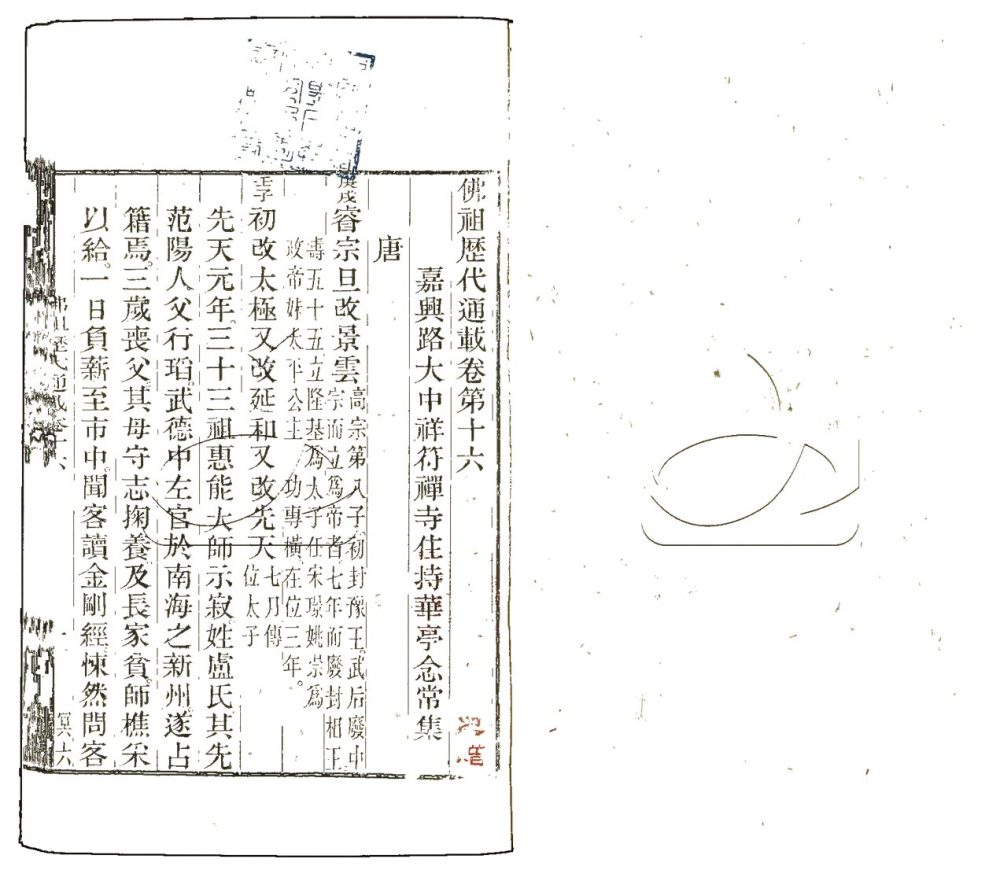 佛祖歷代通載卷第十六
嘉興路大中祥符禪寺住持華亭念常集
唐
庚戌
睿宗旦改景雲
高宗第八子初封豫王武后廢中
宗而立爲帝者七年而廢封相王
壽五十五立隆基爲太子任宋璟姚崇爲
政帝妹太平公主功專橫在位三年。
壬子
初改太極又改延和又改先天
七月傳
位太子
先天元年。三十三祖惠能大師示寂姓盧氏其先
范陽人父行瑫。武德中左官於南海之新州。遂占
籍焉。三歲喪父。其母守志掬養及長家貧。師樵采
以給。一日負薪至市中。聞客讀金剛經。悚然問客
佛祖歷代通載卷十六
冥六